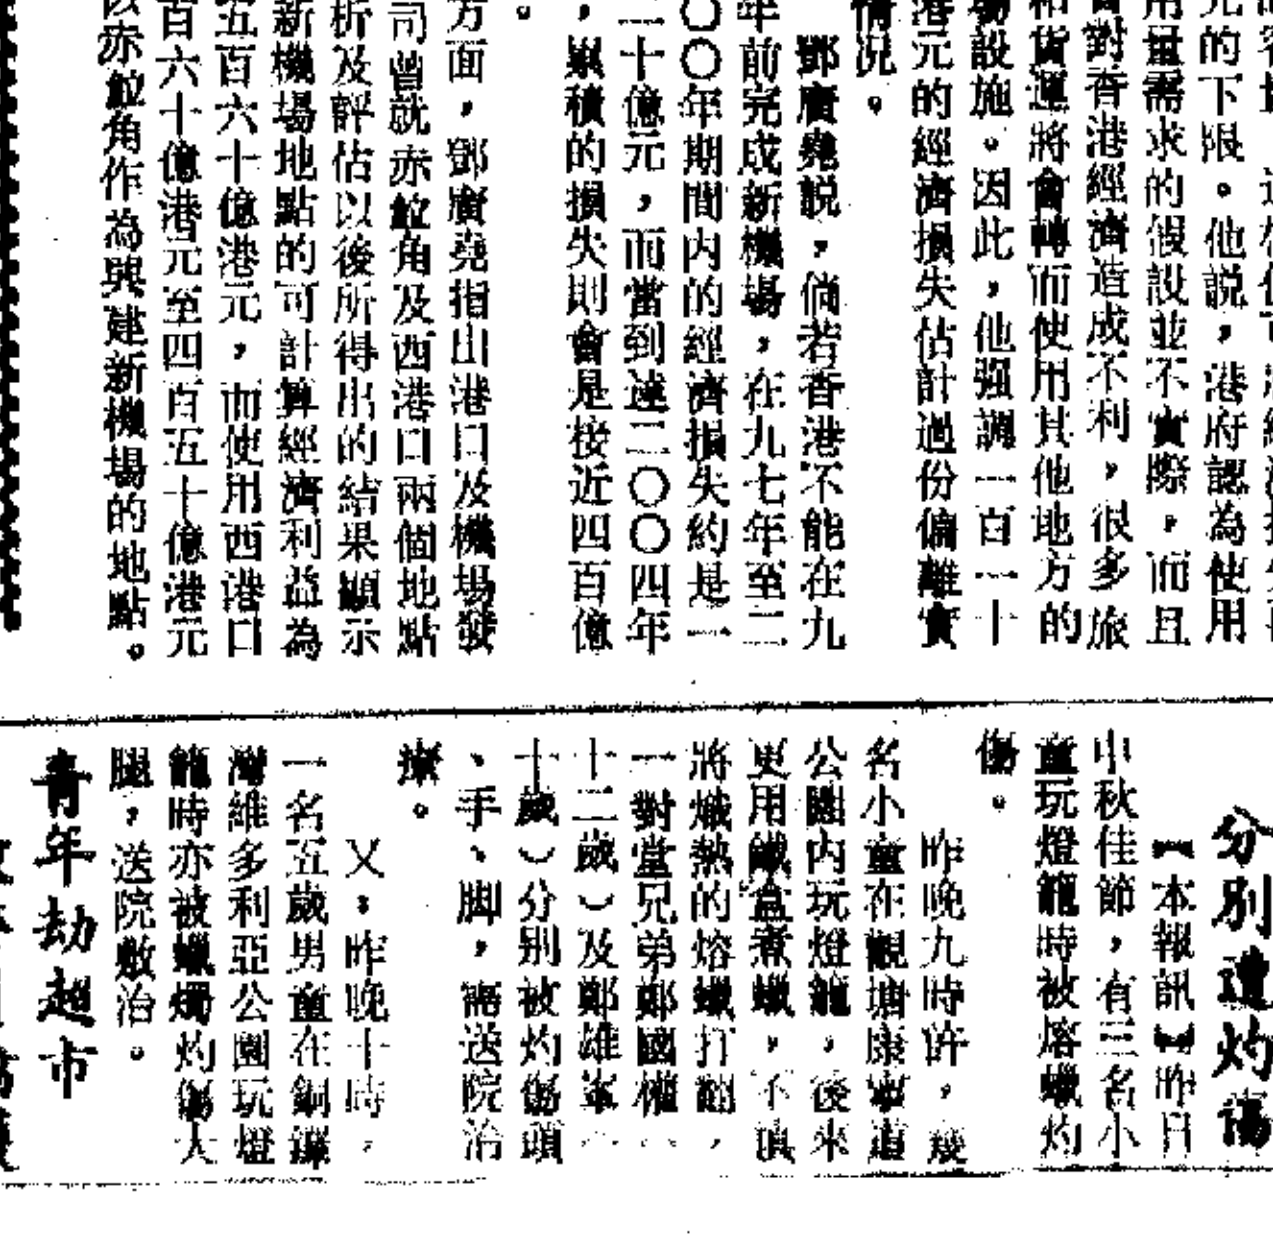 元的下限。他說，港府認為使用
用量需求的假設並不實際，而且
會對香港經濟造成不利，很多旅
和貨運將會轉而使用其他地方的
場設施。因此，他强調一百一十
港元的經濟損失估計過份偏離實
情况。
鄧廣堯說，倘若香港不能在九
年前完成新機場，在九七年至二
〇〇年期間內的經濟損失約是一
二十億元，而當到達二〇〇四年
，累積的損失則會是接近四百億
。
方面，鄧廣堯指出港口及機場發
司曾就赤鱲角及西港口兩個地點
析及評估以後所得出的結果顯示
新機場地點的可計算經濟利益為
五百六十億港元，而使用西港口
百六十億港元至四百五十億港元
以赤鱲角作為興建新機場的地點。
分別遭灼傷
【本報訊】昨日
中秋佳節，有三名小
童玩燈籠時被熔蠟灼
傷。
昨晚九時許，幾
名小童在觀塘康寧道
公園內玩燈籠，後來
更用鐵盒煮蠟，不慎
將熾熱的熔蠟打翻，
一對堂兄弟鄭國權（
十二歲）及鄭雄峯（
十歲）分別被灼傷頭
、手、脚，需送院治
療。
又，昨晚十時，
一名五歲男童在銅鑼
灣維多利亞公園玩燈
籠時亦被蠟燭灼傷大
腿，送院敷治。
青年劫超市